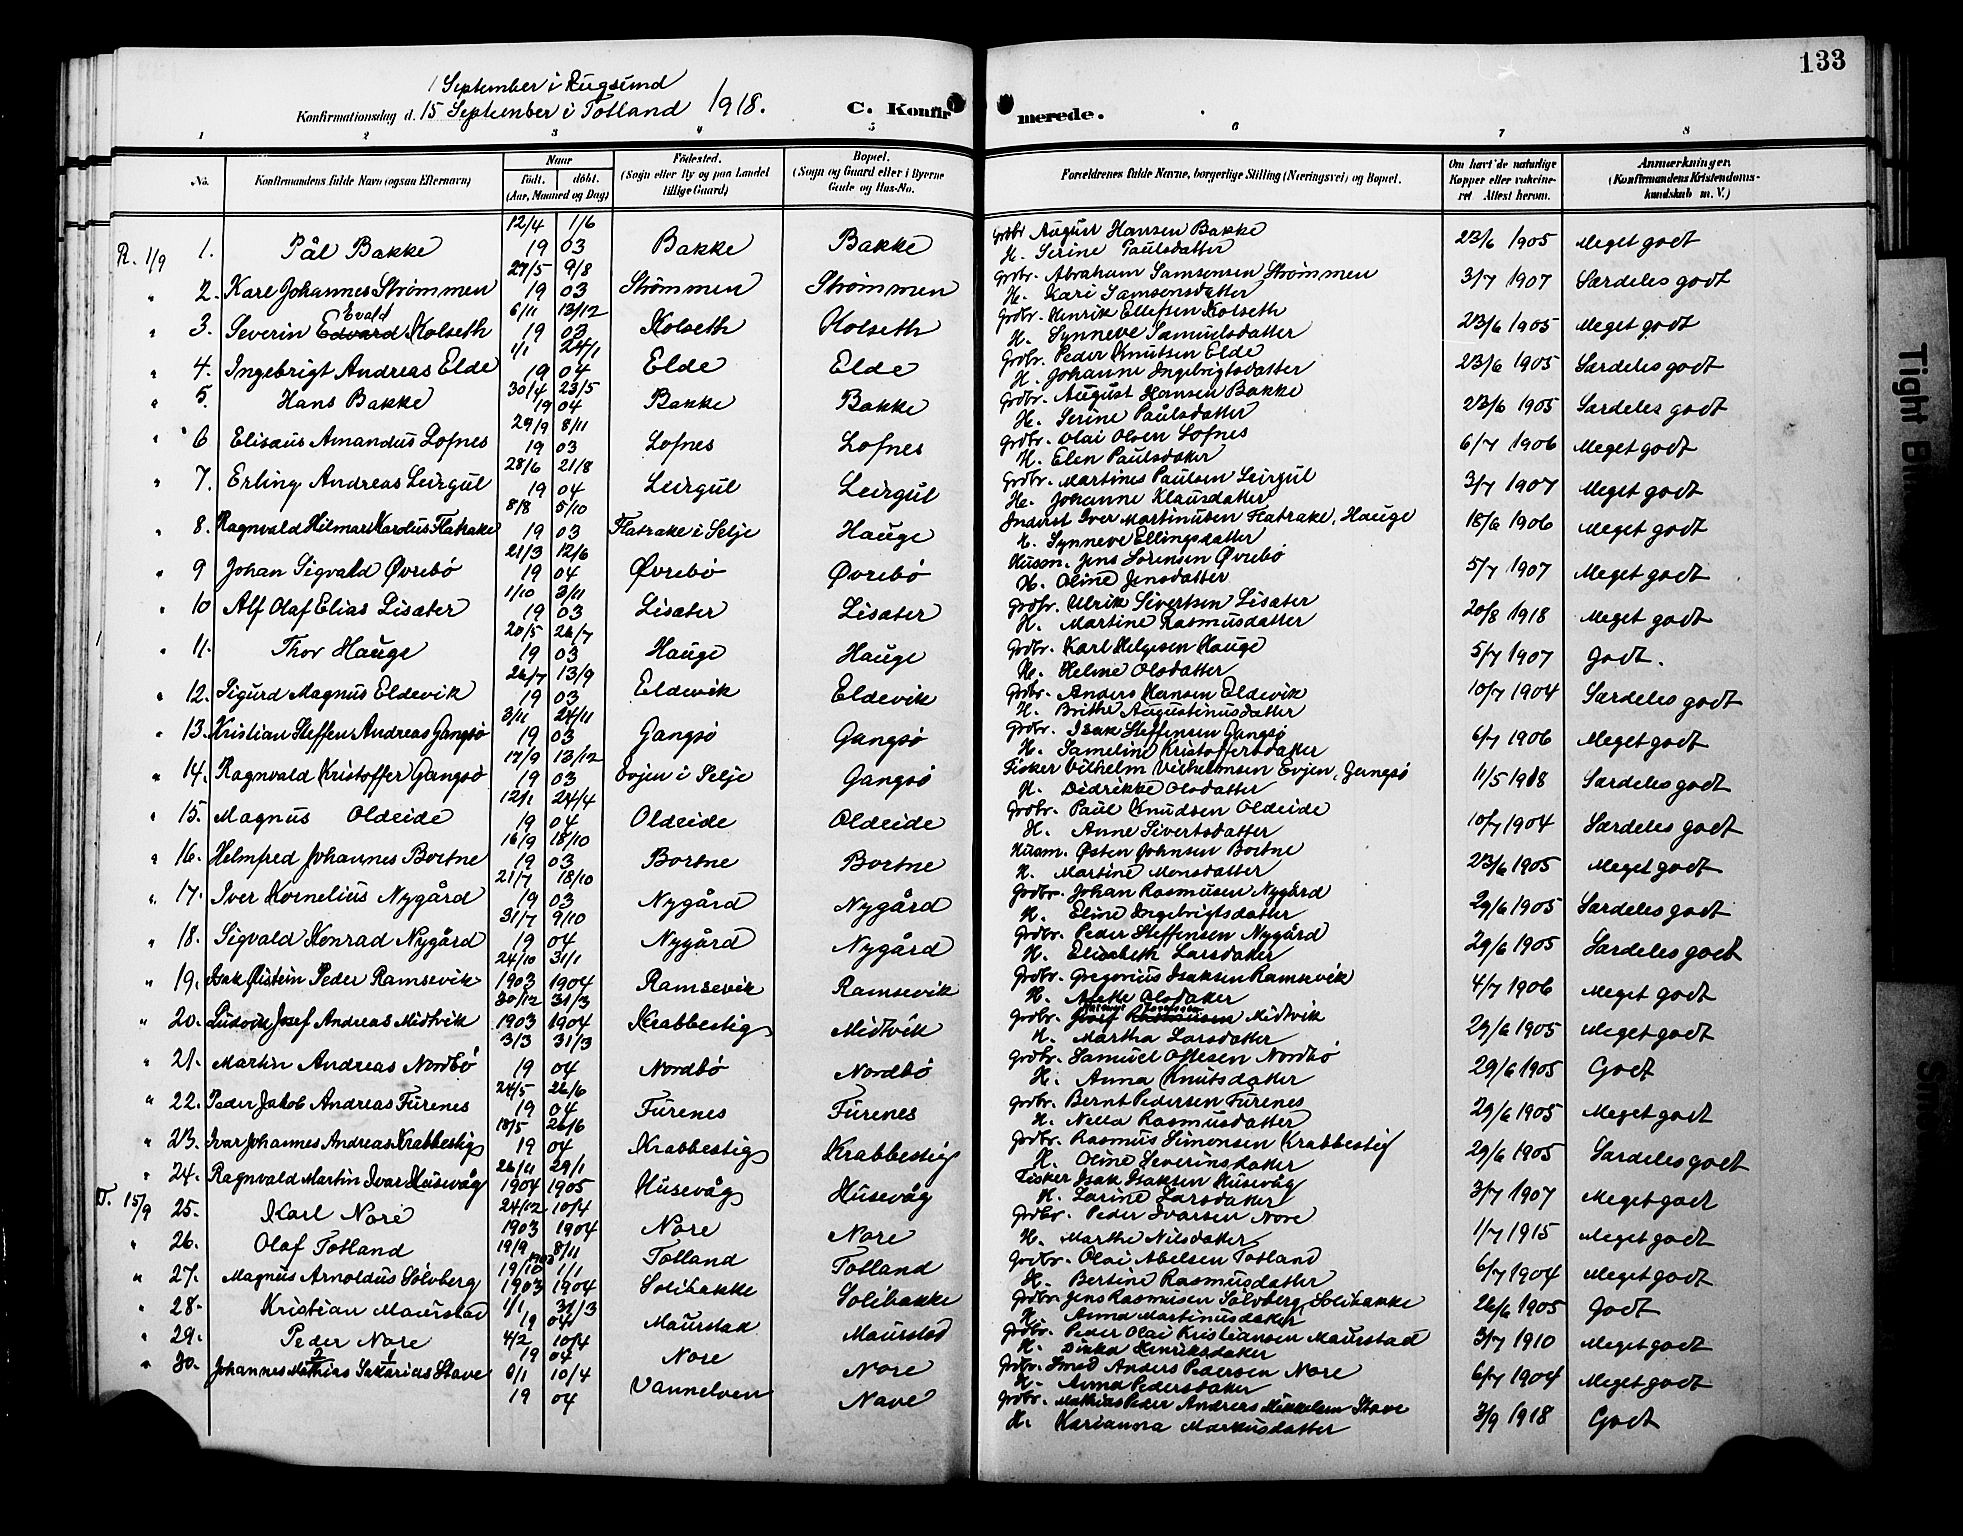 133
1 September i Rugsund
Konfirmationsdag d. 15 September i Totland 1918.
C. Konfirmerede.
1 2 3 4 5 6 7 8
No. Konfirmandens fulde Navn (ogsaa Efternavn) Naar født. døbt. (Aar, Maaned og Dag) Fødested. (Sogn eller By og paa Landet tillige Gaard) Bopæl. (Sogn og Gaard eller i Byerne Gade og Hus-No. Forældrenes fulde Navne, borgerlige Stilling (Næringsvei) og Bopæl. Om havt de naturlige Kopper eller vakcineret Attest herom. Anmærkninger. (Konfirmandens Kristendomskundskab m. V.)
R. 1/9 1. Pål Bakke 12/4 1/6 19 03 Bakke Bakke Grdbr. August Hansen Bakke H. Serine Paulsdatter 23/6 1905 Meget godt
" 2. Karl Johannes Strømmen 27/5 9/8 19 03 Strømmen Strømmen Grdbr. Abraham Samsonsen Strømmen H. Kari Samsonsdatter 3/7 1907 Særdeles godt
" 3. Severin Edvard Evald Kolseth 6/11 13/12 19 03 Kolseth Kolseth Grdbr. Henrik Ellefsen Kolseth H. Synneve Samuelsdatter 23/6 1905 Meget godt
" 4. Ingebrigt Andreas Elde 1/1 24/1 19 04 Elde Elde Grdbr. Peder Knutsen Elde H. Johanne Ingebrigtsdatter 23/6 1905 Særdeles godt
" 5. Hans Bakke 30/4 23/5 19 04 Bakke Bakke Grdbr. August Hansen Bakke H. Serine Påulsdatter 23/6 1905 Særdeles godt
" 6 Elisæus Amandus Lofnes 29/9 8/11 19 03 Lofnes Lofnes Grdbr. Olai Olsen Lofnes H. Elen Paulsdatter 6/7 1906 Meget godt
" 7. Erling Andreas Leirgul 28/6 21/8 19 04 Leirgul Leirgul Grdbr. Martines Paulsen Leirgul H. Johanne Klausdatter 3/7 1907 Meget godt
" 8. Ragnvald Hilmar Kardus Flatrake 8/8 5/10 19 03 Flatrake i Selje Hauge Inderst Iver Martinusen Flatrake, Hauge H. Synneve Ellingsdatter 18/6 1906 Meget godt
" 9 Johan Sigvald Øvrebø 21/3 12/6 19 04 Øvrebø Øvrebø Husm. Jens Sørensen Øvrebø H. Oline Jensdatter 5/7 1907 Meget godt
" 10 Alf Olaf Elias Lisæter 1/10 3/11 19 03 Lisæter Lisæter Grdbr. Ulrik Sivertsen Lisæter H. Martine Rasmusdatter 20/8 1918 Meget godt
" 11. Thor Hauge 20/5 26/7 19 03 Hauge Hauge Grdbr. Karl Helgesen Hauge H. Helene Olsdatter 5/7 1907 Godt.
" 12. Sigurd Magnus Eldevik 26/7 13/9 19 03 Eldevik Eldevik Grdbr. Anders Hansen Eldevik H. Brithe Augustinusdatter 10/7 1904 Særdeles godt
" 13. Kristian Steffen Andreas Gangsø 3/11 24/11 19 03 Gangsø Gangsø Grdbr. Isak Steffensen Gangsø H. Sameline Kristoffersdatter 6/7 1906 Meget godt
" 14. Ragnvald Kristoffer Gangsø 17/9 13/12 19 03 Evjen i Selje Gangsø Fisker Vilhelm Vilhelmsen Evjen, Gangsø H. Didrikke Olsdatter 11/5 1918 Særdeles godt
" 15. Magnus Oldeide 12/1 24/4 19 04 Oldeide Oldeide Grdbr. Paul Knudsen Oldeide H. Anne Sivertsdatter 10/7 1904 Særdeles godt
" 16. Helmfred Johannes Bortne 16/9 18/10 19 03 Bortne Bortne Husm. Østen Johnsen Bortne H. Martine Monsdatter 23/6 1905 Meget godt
" 17. Iver Kornelius Nygård 21/7 18/10 19 03 Nygård Nygård Grdbr. Johan Rasmusen Nygård H. Eline Ingebrigtsdatter 29/6 1905 Særdeles godt
" 18. Sigvald Konrad Nygård 31/7 9/10 19 04 Nygård Nygård Grdbr. Peder Steffensen Nygård H. Elisabeth Larsdatter 29/6 1905 Særdeles godt
" 19. Isak Øistein Peder Ramsevik 24/10 31/1 1903 1904 Ramsevik Ramsevik Grdbr. Gregorius Isaksen Ramsevik H. Anette Olsdatter 4/7 1906 Meget godt
" 20. Ludvik Josef Andreas Midtvik 30/12 31/3 1903 1904 Krabbestig Midtvik Grdbr. Rasmusen Midtvik H. Martha Larsdatter 29/6 1905 Meget godt
" 21. Martin Andreas Nordbø 3/3 31/3 19 04 Nordbø Nordbø Grdbr. Samuel Ottesen Nordbø H. Anna Knutsdatter 29/6 1905 Godt
" 22. Peder Jakob Andreas Furenes 24/5 26/6 19 04 Furenes Furenes Grdbr. Bernt Pedersen Furenes H. Nella Rasmusdatter 29/6 1905 Meget godt
" 23. Ivar Johannes Andreas Krabbestig 18/5 26/6 19 04 Krabbestig Krabbestig Grdbr. Rasmus Simonsen Krabbestig H. Oline Severinsdatter 29/6 1905 Særdeles godt
" 24. Ragnvald Martin Ivar Husevåg 26/11 29/1 1904 1905 Husevåg Husevåg Fisker Isak Isaksen Husevåg H. Larine Larsdatter 3/7 1907 Meget godt
T. 15/9 25. Karl Nore 24/12 10/4 1903 1904 Nore Nore Grdbr. Peder Ivarsen Nore H. Marthe Nilsdatter 1/7 1915 Meget godt
" 26. Olaf Totland 19/9 8/11 1903 Totland Totland Grdbr. Olai Abelsen Totland H. Bertine Rasmusdatter 6/7 1904 Meget godt
" 27. Magnus Arnoldus Sølvberg 19/10 1/1 1903 1904 Solibakke Solibakke Grdbr. Jens Rasmusen Sølvberg, Solibakke H. Anna Martinusdatter 26/6 1905 Godt
" 28. Kristian Maurstad 1/1 31/3 19 04 Maurstad Maurstad Grdbr. Peder Olai Kristiansen Maurstad H. Dirka Henriksdatter 3/7 1910 Meget godt
" 29. Peder Nore 4/2 10/4 19 04 Nore Nore Grdbr. Smed Anders Pedersen Nore H. Anna Pedersdatter 6/7 1904 Meget godt
" 30. Johannes Mathias Sakarias Stave 2 1 6/1 10/4 19 04 Vannelven Nave Grdbr. Mathias Peder Andreas Mikkelsen Stave H. Karianna Markusdatter 3/9 1918 Godt
Tight Bin